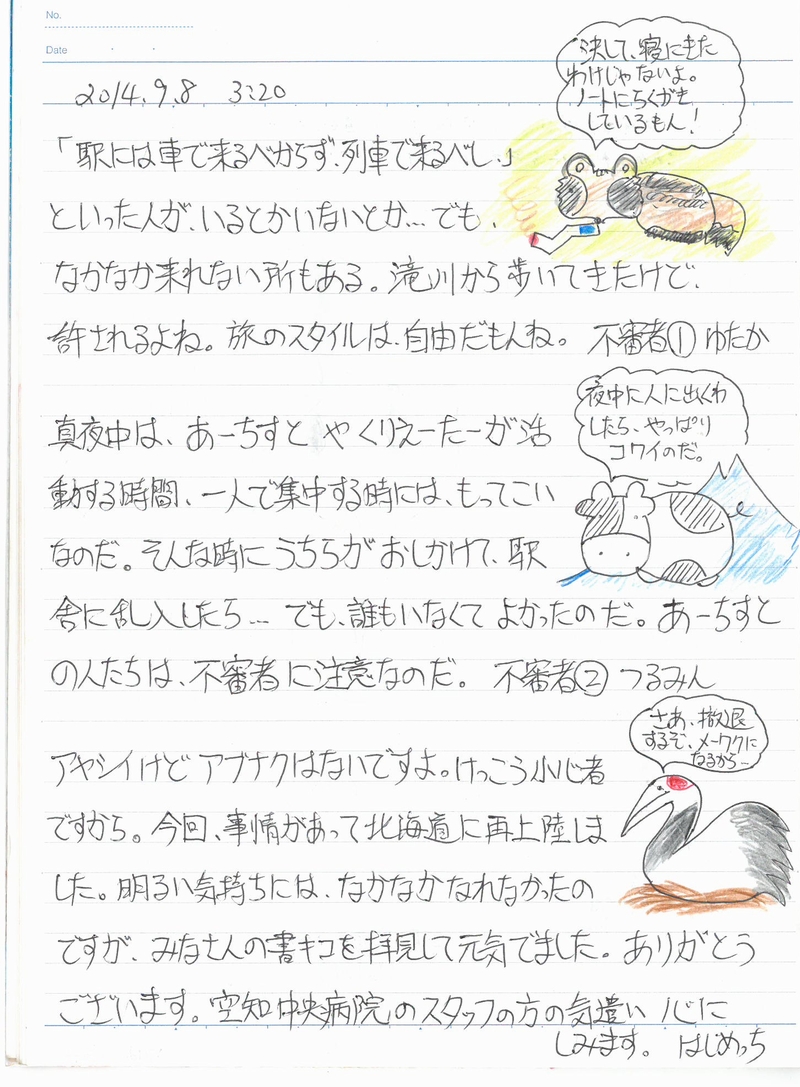 No.
Date
2014.9.8 3:20
決して、寝にきた
わけじゃないよ。
ノートにらくがき
しているもん！
「駅には車で来るべからず、列車で来るべし、」
といった人が、いるとかいないとか…でも、
なかなか来れない所もある。滝川から歩いてきたけど、
許されるよね。旅のスタイルは、自由だもんね。 不審者① ゆたか
夜中に人に出くわ
したら、やっぱり
コワイのだ。
真夜中は、あーちすと や くりえーたーが活
動する時間、一人で集中する時には、もってこい
なのだ。そんな時に うちらが おしかけて、駅
舎に乱入したら… でも、誰もいなくて よかったのだ。あーちすと
の人たちは、不審者に注意なのだ。 不審者② つるみん
さあ、撤退
するぞ、メーワクに
なるから…
アヤシイけど アブナクはないですよ。けっこう小心者
ですから。今回、事情があって北海道に再上陸しま
した。明るい気持ちには、なかなかなれなかったの
ですが、みなさんの書キコを拝見して元気でました。ありがとう
ございます。空知中央病院のスタッフの方の気遣い 心に
しみます。 はじめっち